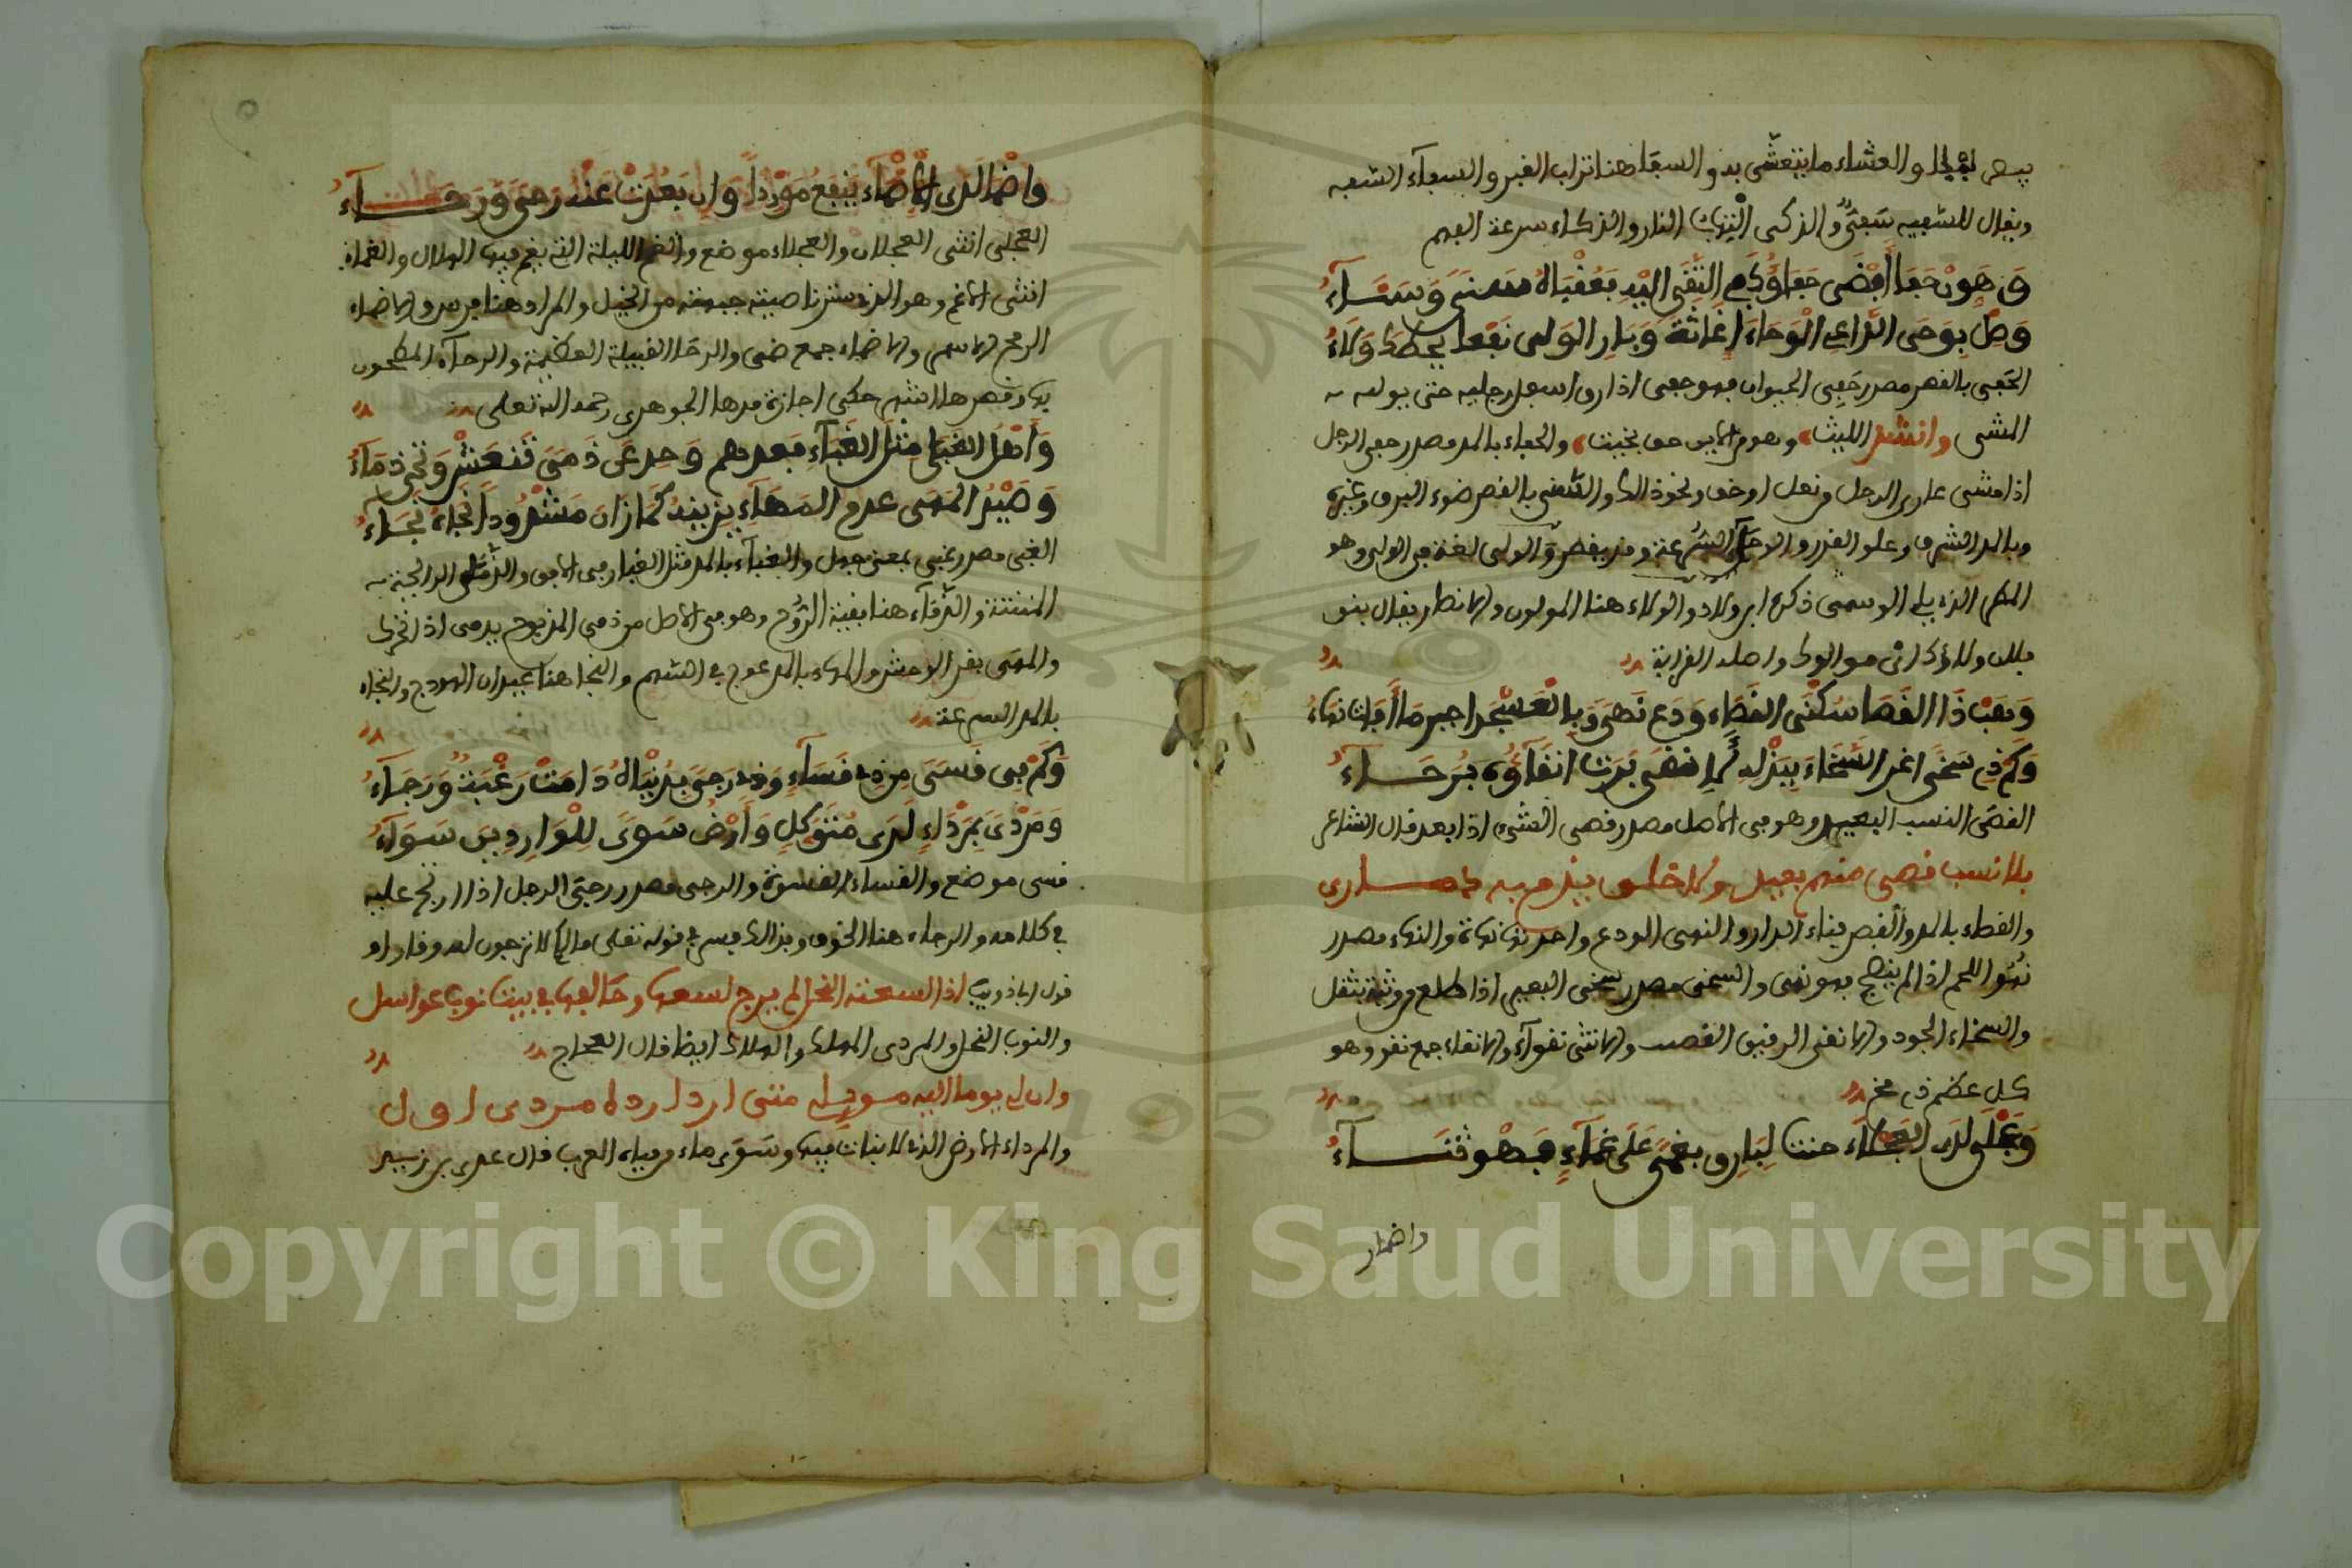 والعشاء ما يتعشى به والسفا هنا تراب القبر والسفاء السفه
ويقال للسفيه سفي والذكى التهاب النار والذكاء سرعة الفهم
وهون حفا أفضى حفاؤكم التقى إليه فعقباه سنى وسناء
وصل بوحى الداعي الوحاء إغاثة وبار الولى نفعا يحطك ولاء
الحفى بالقصر مصدر حفي الحيوان فهو حفى اذا رق اسفل رجليه حتى يولمه
المشى وانشد الليث وهو من الاين حف نحيت والحفاء بالمد مصدر حفي الرجل
اذا مشى عاري الرجل من نعل او خف ونحو ذلك والسنى بالقصر ضوء البرق وغيره
وبالمد الشرف وعلو القدر والوحاء السرعة وقد يقصر والولى لغة في الولي وهو
المطر الذي يلي الوسمى ذكره ابن ولاد والولاء هنا الموالون والانصار يقال بنو
فلان ولاء كذا اي موالوك واصله القرابة
وهب ذا القصا سكنى القصاء ودع نهى وبالعسجد اجبر ما أفات نهاء
وكم ذي سخى اغر السخاء ببذله لانقى برت انقاؤه برحاء
القصى النسب البعيد وهو في الاصل مصدر قصي الشيء اذا بعد قال الشاعر
بلا نسب قصي منهم بعيد ولا خلق يذم به
والقصاء بالمد والقصر فناء الدار والنهى الودع واحدته نهاة والنهاء مصدر
نهؤ اللحم اذا لم ينضج فهو نهى والسخى مصدر سخي البعير اذا ظلع من وثبة بثقل
والسخاء الجود والانقى الرقيق القصب والانثى نقواء والانقاء جمع نقو وهو
كل عظم ذي مخ
وعجلى لدى العجلاء حنت لبارق بغمى على غماء فهو ثناء
واضمار
واضما لدى الاضماء ينفع موردا وان بعدت عند رحى ورحاء
العجلى انثى العجلان والعجلاء موضع والغمى الليلة التي يغم فيها الهلال والغماء
انثى الاغم وهو الذي ستر ناصيته جبهته من الخيل والمراد هنا فرس والاضماء
الرمح الاسمر والاضماء جمع ضمى والرحا القبيلة العظيمة والرحاء المطحون
بها وقصرها اشهر حكى اجازة مدها الجوهري رحمه الله تعلى
وأهل الغبى مثل الغباء فعدهم وحد عن ذمى فتعش ونحى ذماء
وصيد المهى عدم المهاء يزينه كما زان مشدودا نجاء نجاء
الغبى مصدر غبي بمعنى جهل والغباء بالمد مثل الغبار في الافق والذمى الرائحة
المنتنة والذماء هنا بقية الروح وهو في الاصل من ذمى المذبوح يذمى اذا تحرك
والمهى بقر الوحش والمهاء بالمد عوج في السهم والنجا هنا عيدان الهودج والنجاء
بالمد السرعة
وكم في قسى من ذي قساء وذي رجى بدنياه دامت رغبة ورجاء
ومردى بمرداء لدى متوكل وأرض سوى للواردين سواء
قسى موضع والقساء القسوة والرجى مصدر رجي الرجل اذا ارتج عليه
في كلامه والرجاء هنا الخوف وبذالك فسر في قوله تعلى مالكم لا ترجون لله وقارا و
قول ابي ذويب اذا لسعته النحل لم يرج لسعها وحالفها في بيت نوب عواسل
والنوب النحل والمردى الهلك والهلاك ايضا قال العجاج
وان لي يوما اليه موىلي متى ارد ارده مردى اول
والمرداء الارض التي لا نبات فيها وسوى ماء من مياه العرب قال عدي بن زيد